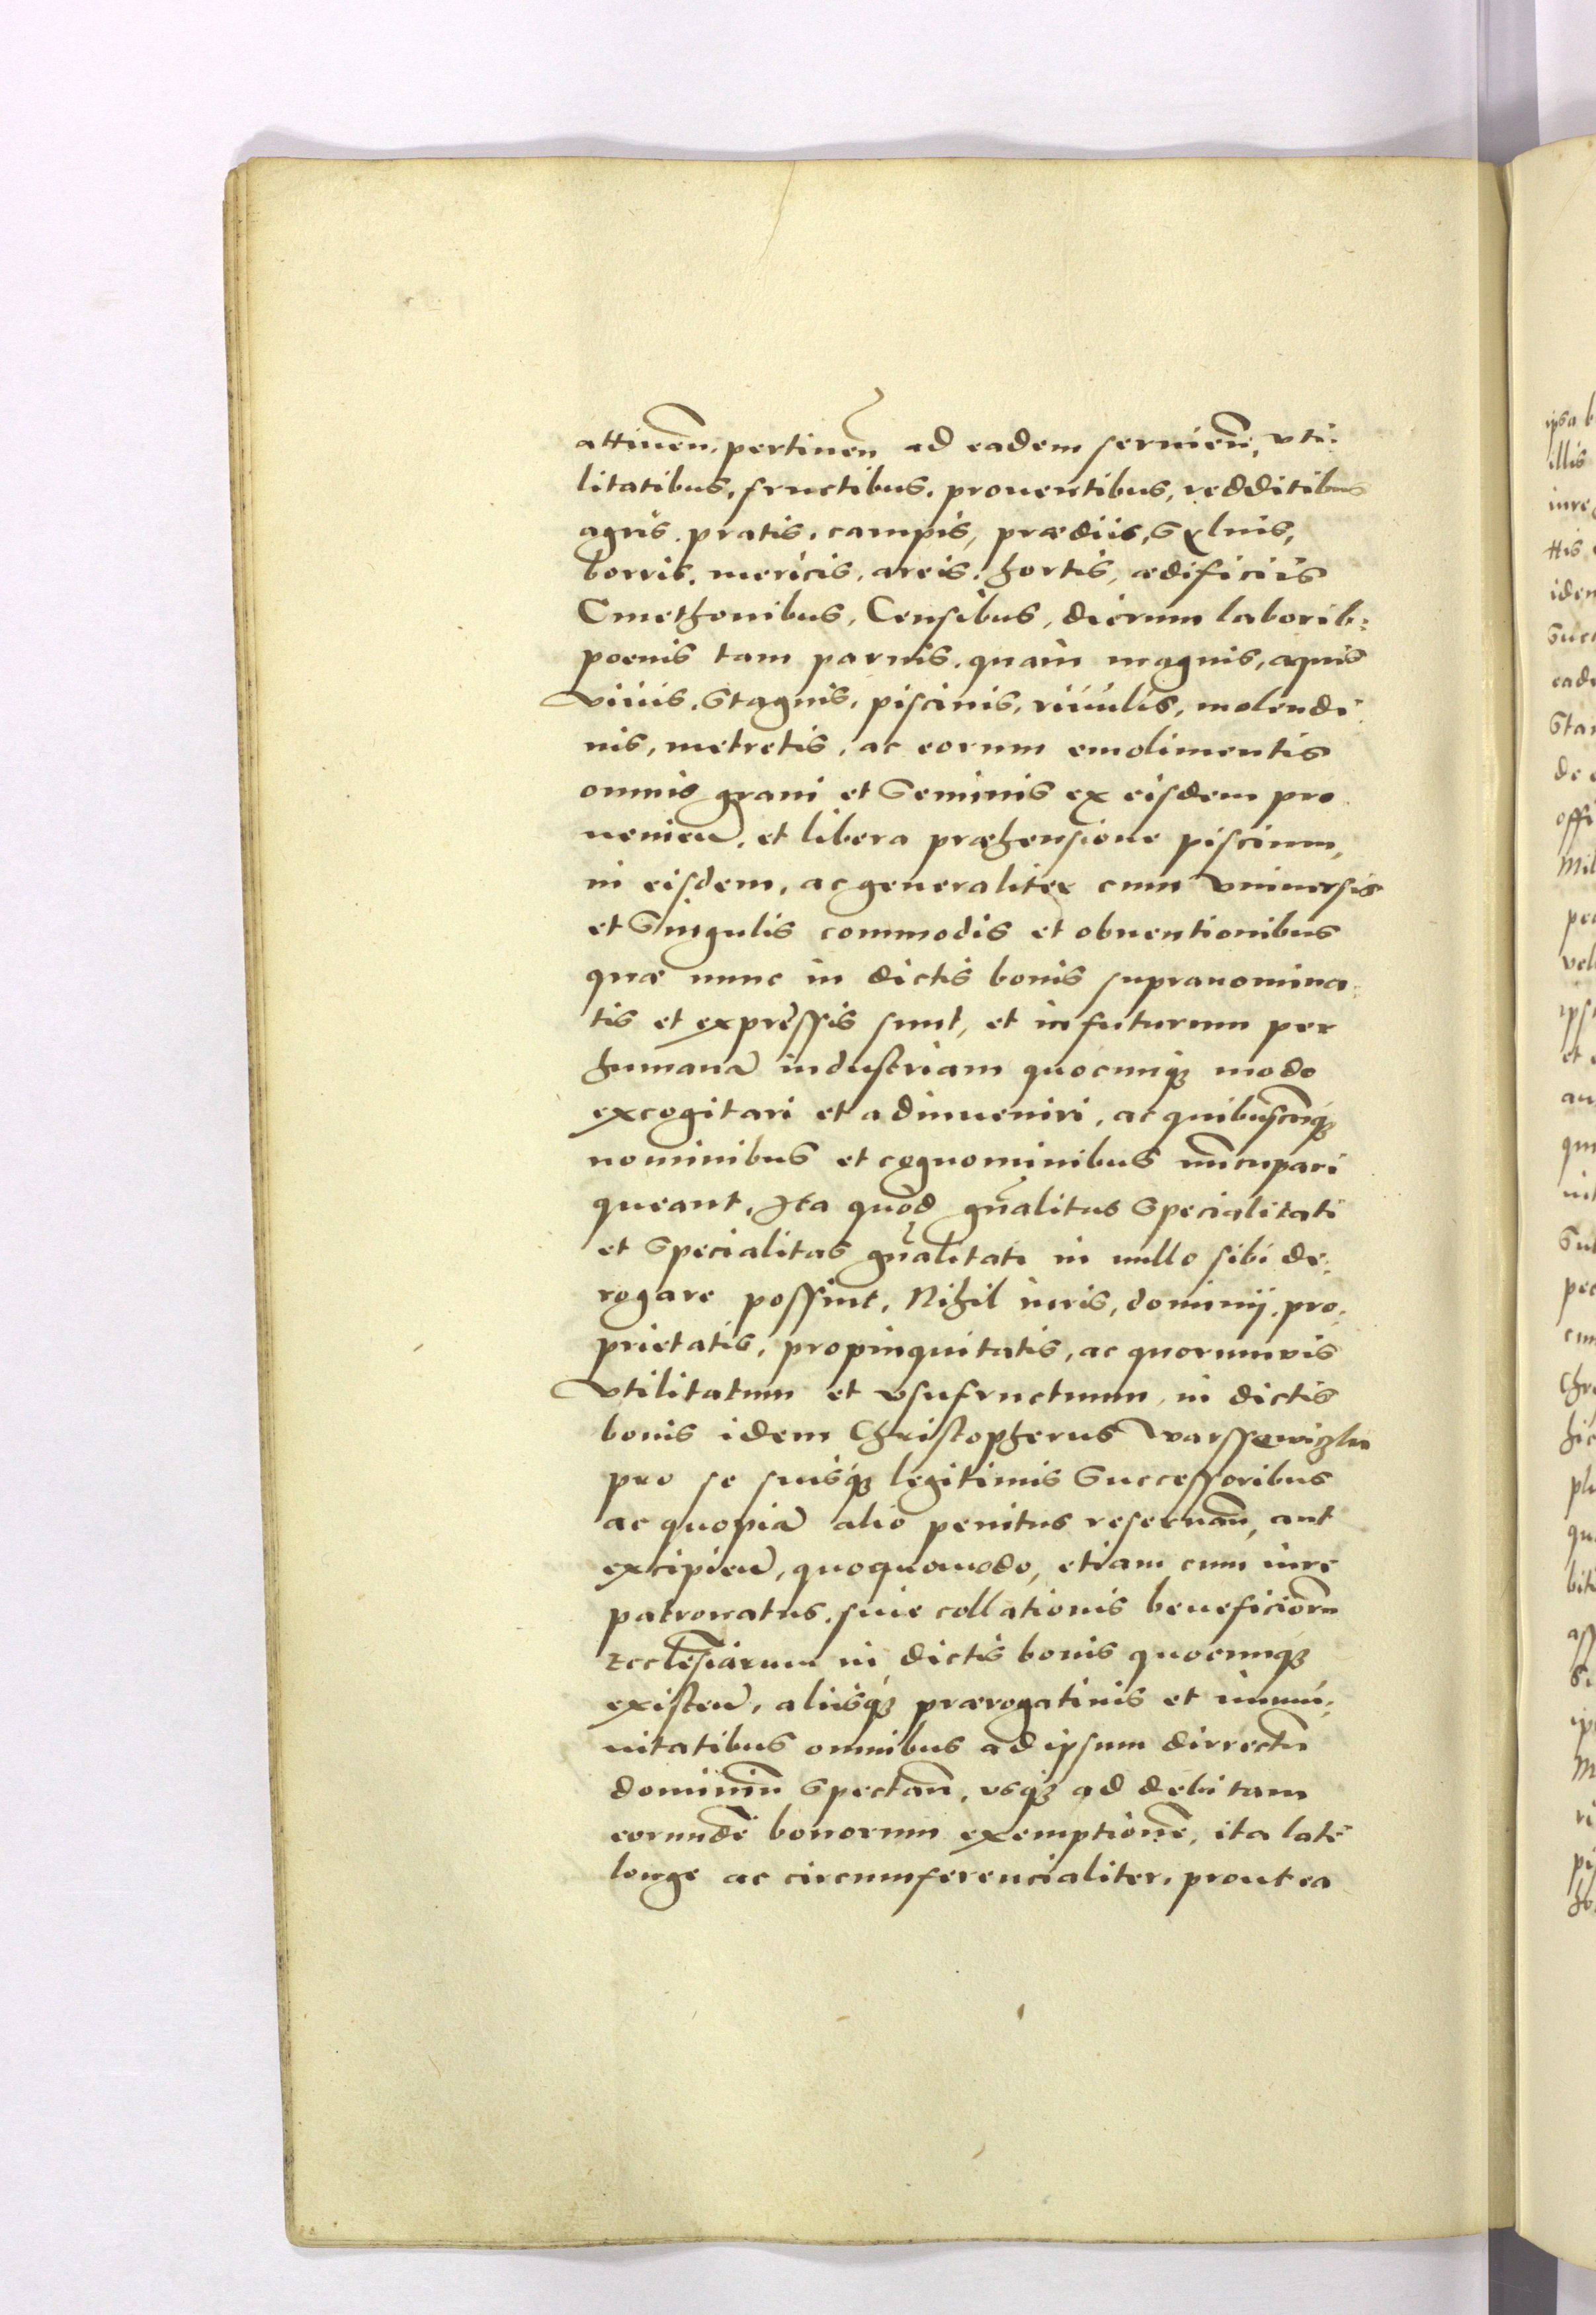 attineñ. pertineñ ad eadem seruieñ, vti:
litatibus, fructibus, prouentibus, redditibus
agris. pratis. campis, prædiis, Syluis,
borris. mericis, areis. hortis, ædificiis
Cmethonibus, Censibus, dierum laborib:
poenis tam paruis, quam magnis, aquis
viuis. Stagnis, piscinis, riuulis, molendi
nis, metretis, ac eorum emolimentis
omnis grani et Seminis ex eisdem pro
uenieñ. et libera præhensione piscium,
in eisdem, ac generaliter cum vniuersis
et Singulis commodis et obuentionibus
quæ nunc in dictis bonis supranomina:
tis et expressis sunt, et in futurum per
humanã industriam quocunq3 modo
excogitari et adinueniri, ac quibuscũq3
nominibus et cognominibus nũcupari
queant. Ita quòd gñalitas Specialitati
et Specialitas gñalitati in nullo sibi de:
rogare possint. Nihil iuris, dominij. pro:
prietatis, propinquitatis, ac quorumuis
vtilitatum et vsufructuum, in dictis
bonis idem Christopherus Warssewiczki
pro se suisq3 legitimis Successoribus
ac quopiã alio penitus reseruañ, aut
excipieñ, quoquomodo, etiam cum iure
patronatus. siue collationis beneficiorũ
Ecclesiarum in dictis bonis quocunq3
existeñ, aliisq3 prærogatiuis et immu:
nitatibus omnibus ad ipsum dirrectũ
dominiũ Spectañ, vsq3 ad debitam
eorundẽ bonorum exemptionẽ, ita latè
longe ac circumferencialiter, prout ea